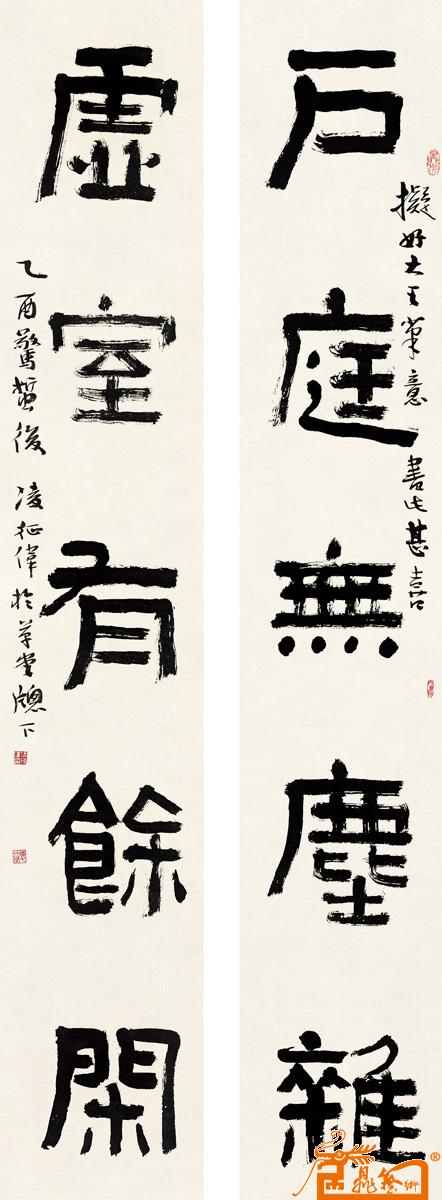 戶庭無塵雜
擬好大王筆意 書此甚喜
虛室有餘閑
乙酉驚蟄後 凌征偉於草堂窗下